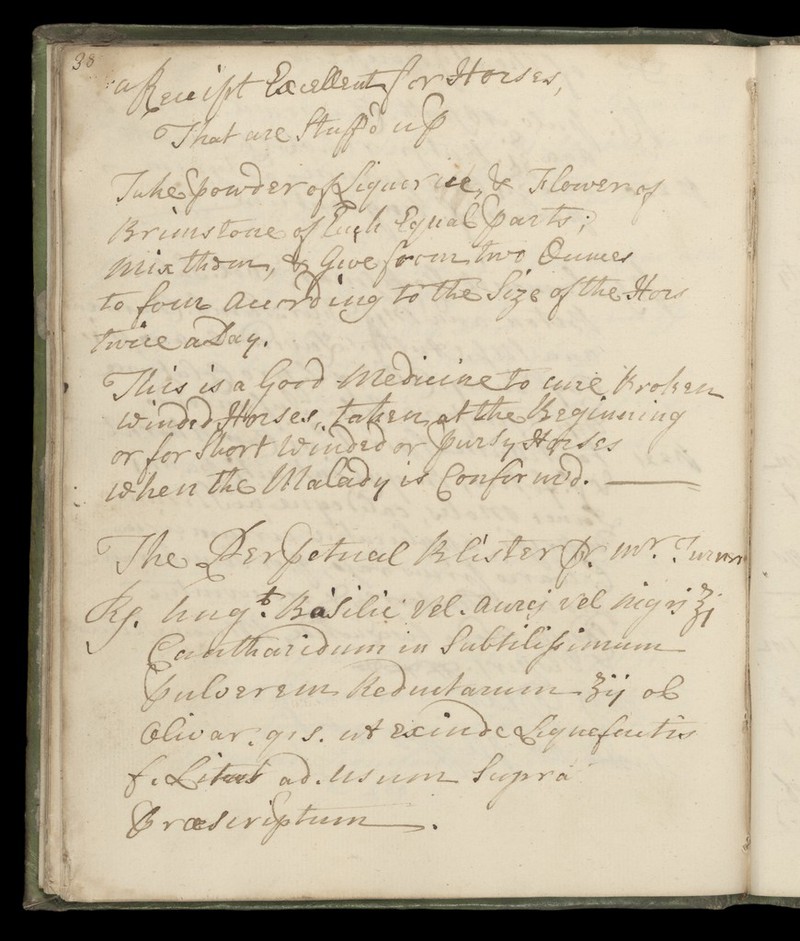 38
a Receipt Excellent for Horses,
That are Stuff'd up
Take powder of Liquorice, & Flower of
Brimstone of Each Equal parts;
Mix them, & Give from two Ounces
to four According to the Size of the Hors
twice a Day.
This is a Good Medicine to cure Broken
Winded Horses, taken at the Beginning
or for Short Winded or pursy Horses
when the Malady is Confirm'd.
The Perpetual Blister Pr. Mr. Turner
Rx. Ungt. Basilic Vel. Aurej vel nigri ℥j
Cantharidum in Subtilissimum
pulverem Reductarum ʒij ol
Olivar. q. s. ut exinde Liquefactis
f. Litus ad. Usum Supra
Præscriptum.